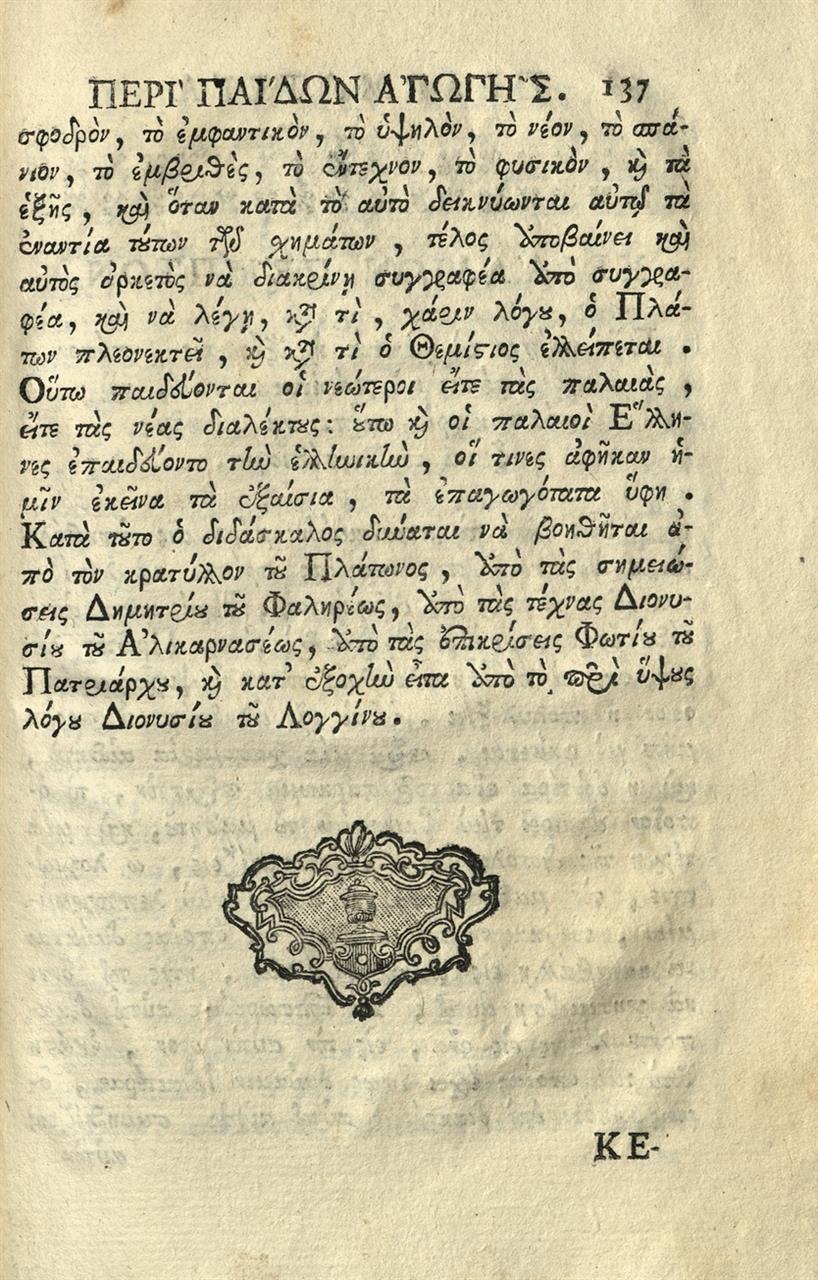 ΠΕΡΙ' ΠΑΙ'ΔΩΝ Α'ΓΩΓΗ~Σ. 137
σφοδρὸν, τὸ ἐμφαντικὸν, τὸ ὑψηλὸν, τὸ νέον, τὸ σπά-
νιον, τὸ ἐμβριθὲς, τὸ ἔντεχνον, τὸ φυσικὸν, ϗ τὰ
ἑξῆς, καὶ ὅταν κατὰ τὸ αὐτὸ δεικνύωνται αὐτῷ τὰ
ἐναντία τούτων τῶν χημάτων, τέλος ἀποβαίνει καὶ
αὐτὸς ἀρκετὸς νὰ διακρίνῃ συγγραφέα ἀπὸ συγγρα-
φέα, καὶ νὰ λέγῃ, κατὰ τὶ, χάριν λόγου, ὁ Πλά-
των πλεονεκτεῖ, ϗ κατὰ τὶ ὁ Θεμίστιος ἐλλείπεται.
Οὕτω παιδεύονται οἱ νεώτεροι εἴτε τὰς παλαιὰς,
εἴτε τὰς νέας διαλέκτους: οὕτω ϗ οἱ παλαιοὶ Ἕλλη-
νες ἐπαιδεύοντο τὴν ἑλληνικὴν, οἵ τινες ἀφῆκαν ἡ-
μῖν ἐκεῖνα τὰ ἐξαίσια, τὰ ἐπαγωγότατα ὕφη.
Κατὰ τοῦτο ὁ διδάσκαλος δύναται νὰ βοηθῆται ἀ-
πὸ τὸν κρατύλλον τοῦ Πλάτωνος, ἀπὸ τὰς σημειώ-
σεις Δημητρίου τοῦ Φαληρέως, ἀπὸ τὰς τέχνας Διονυ-
σίου τοῦ Α'λικαρνασέως, ἀπὸ τὰς ἐπικρίσεις Φωτίου τοῦ
Πατριάρχου, ϗ κατ' ἐξοχὴν εἶτα ἀπὸ τὸ περὶ ὕψους
λόγου Διονυσίου τοῦ Λογγίνου.
ΚΕ-